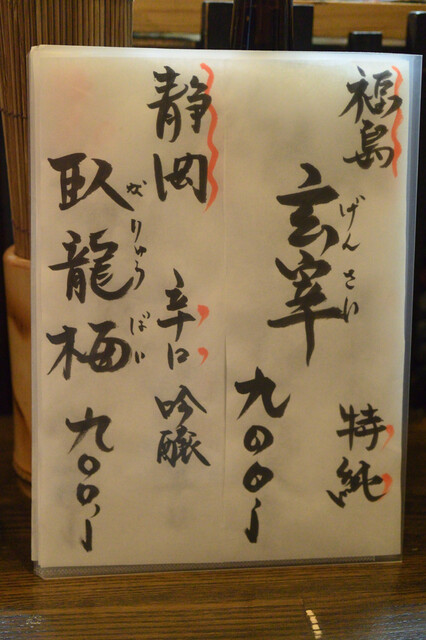 福島
玄宰
げんさい
特純
九〇〇、
静岡
辛口
吟醸
臥龍梅
がりゅうばい
九〇〇、